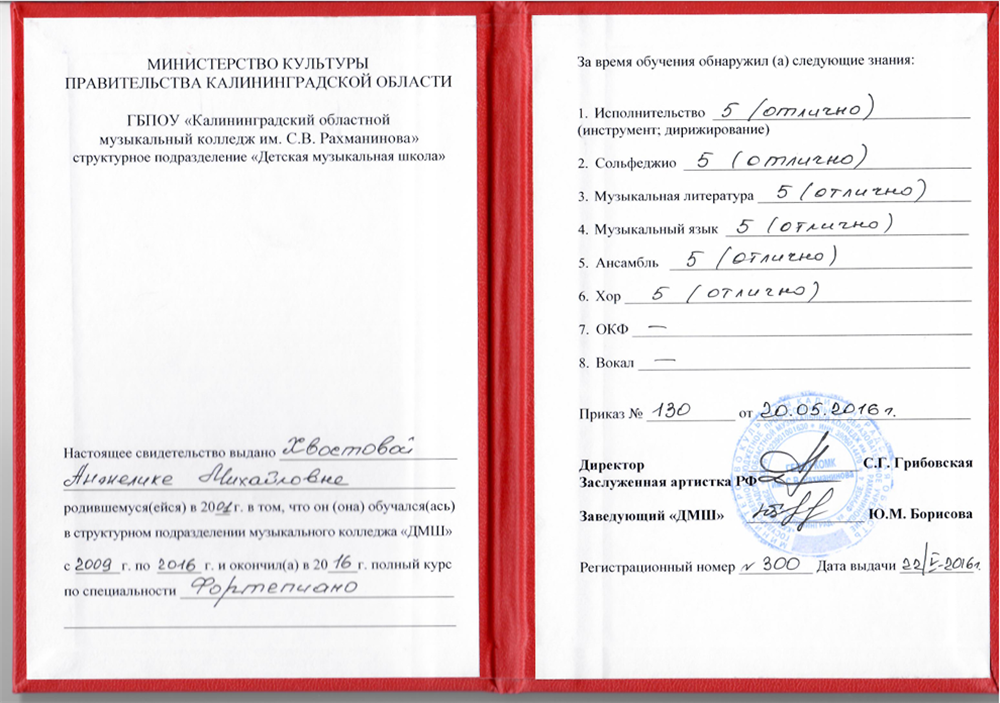 МИНИСТЕРСТВО КУЛЬТУРЫ
ПРАВИТЕЛЬСТВА КАЛИНИНГРАДСКОЙ ОБЛАСТИ
ГБПОУ «Калининградский областной
музыкальный колледж им. С.В. Рахманинова»
структурное подразделение «Детская музыкальная школа»
Настоящее свидетельство выдано Хвостовой
Анжелике Михайловне
родившемуся(ейся) в 2001 г. в том, что он (она) обучался(ась)
в структурном подразделении музыкального колледжа «ДМШ»
с 2009 г. по 2016 г. и окончил(а) в 20 16 г. полный курс
по специальности Фортепиано
За время обучения обнаружил (а) следующие знания:
1. Исполнительство 5 (отлично)
(инструмент; дирижирование)
2. Сольфеджио 5 (отлично)
3. Музыкальная литература 5 (отлично)
4. Музыкальный язык 5 (отлично)
5. Ансамбль 5 (отлично)
6. Хор 5 (отлично)
7. ОКФ —
8. Вокал —
Приказ № 130 от 20.05.2016 г.
Директор С.Г. Грибовская
Заслуженная артистка РФ
Заведующий «ДМШ» Ю.М. Борисова
Регистрационный номер № 300 Дата выдачи 22/V-2016г.